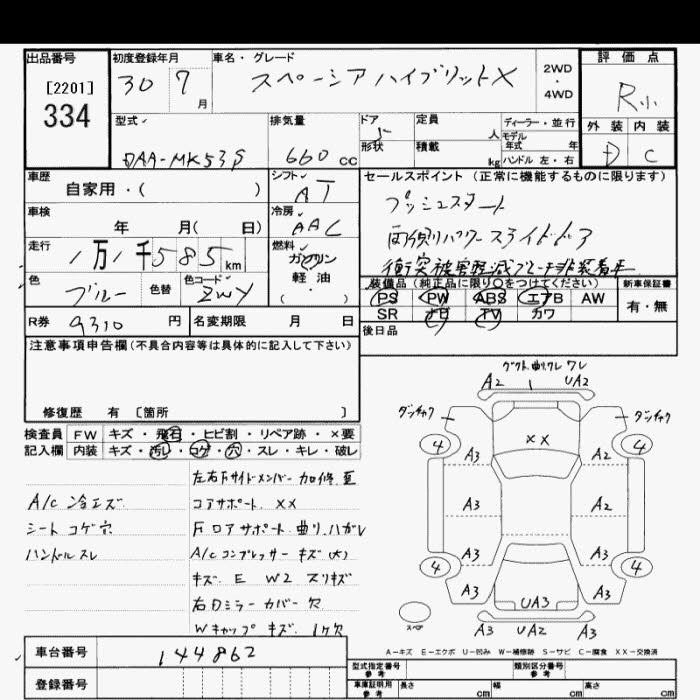 出品番号
[2201]
334
初度登録年月
30 7 月
車名・グレード
スペーシアハイブリッドX
2WD
・
4WD
評価点
R小
外装 内装
D C
型式
DAA-MK53S
排気量
660 cc
ドア
5
形状
定員
人
積載
kg
ディーラー・並行
モデル
年式 年
ハンドル 左・右
車歴
自家用・( )
シフト
AT
車検
年 月( 日)
冷房
AAC
走行
1万1千585km
燃料
ガソリン
軽油
( ・ )
色
ブルー
色替
色コード
ZWY
R券
9310 円
名変期限 月 日
セールスポイント(正常に機能するものに限ります)
プッシュスタート
両側パワースライドドア
衝突被害軽減ブレーキ非装着車
装備品(純正品に限り○をつけてください)
PS PW ABS エアB AW
SR ナビ TV カワ
新車保証書
有・無
後日品
注意事項申告欄(不具合内容等は具体的に記入して下さい)
修復歴 有 [箇所 ]
検査員
記入欄
FW キズ・飛石・ヒビ割・リペア跡・×要
内装 キズ・汚レ・コゲ・穴・スレ・キレ・破レ
A/C 冷エズ
シート コゲ穴
ハンドル スレ
左右Fサイドメンバー 加修 歪
コアサポート XX
FロアサポートE 曲リ ハガレ
A/Cコンプレッサー キズ(大)
キズ E W2 スリキズ
右Dミラーカバー欠
Wキャップキズ 1ケ欠
グクト 曲リ ワレ ワレ
A2 UA2
ダンチャク
ダンチャク
4 4
XX
A3 A2
A3 A2
A3 A3
4 4
A3 A3
UA3
スペア
A3 UA2 A3
A-キズ E-エクボ U-凹み W-補修跡 S-サビ C-腐食 XX-交換済
車台番号
144862
登録番号
型式指定番号
参考
類別区分番号
参考
車庫証明用
参考
長さ cm
幅 cm
高さ cm